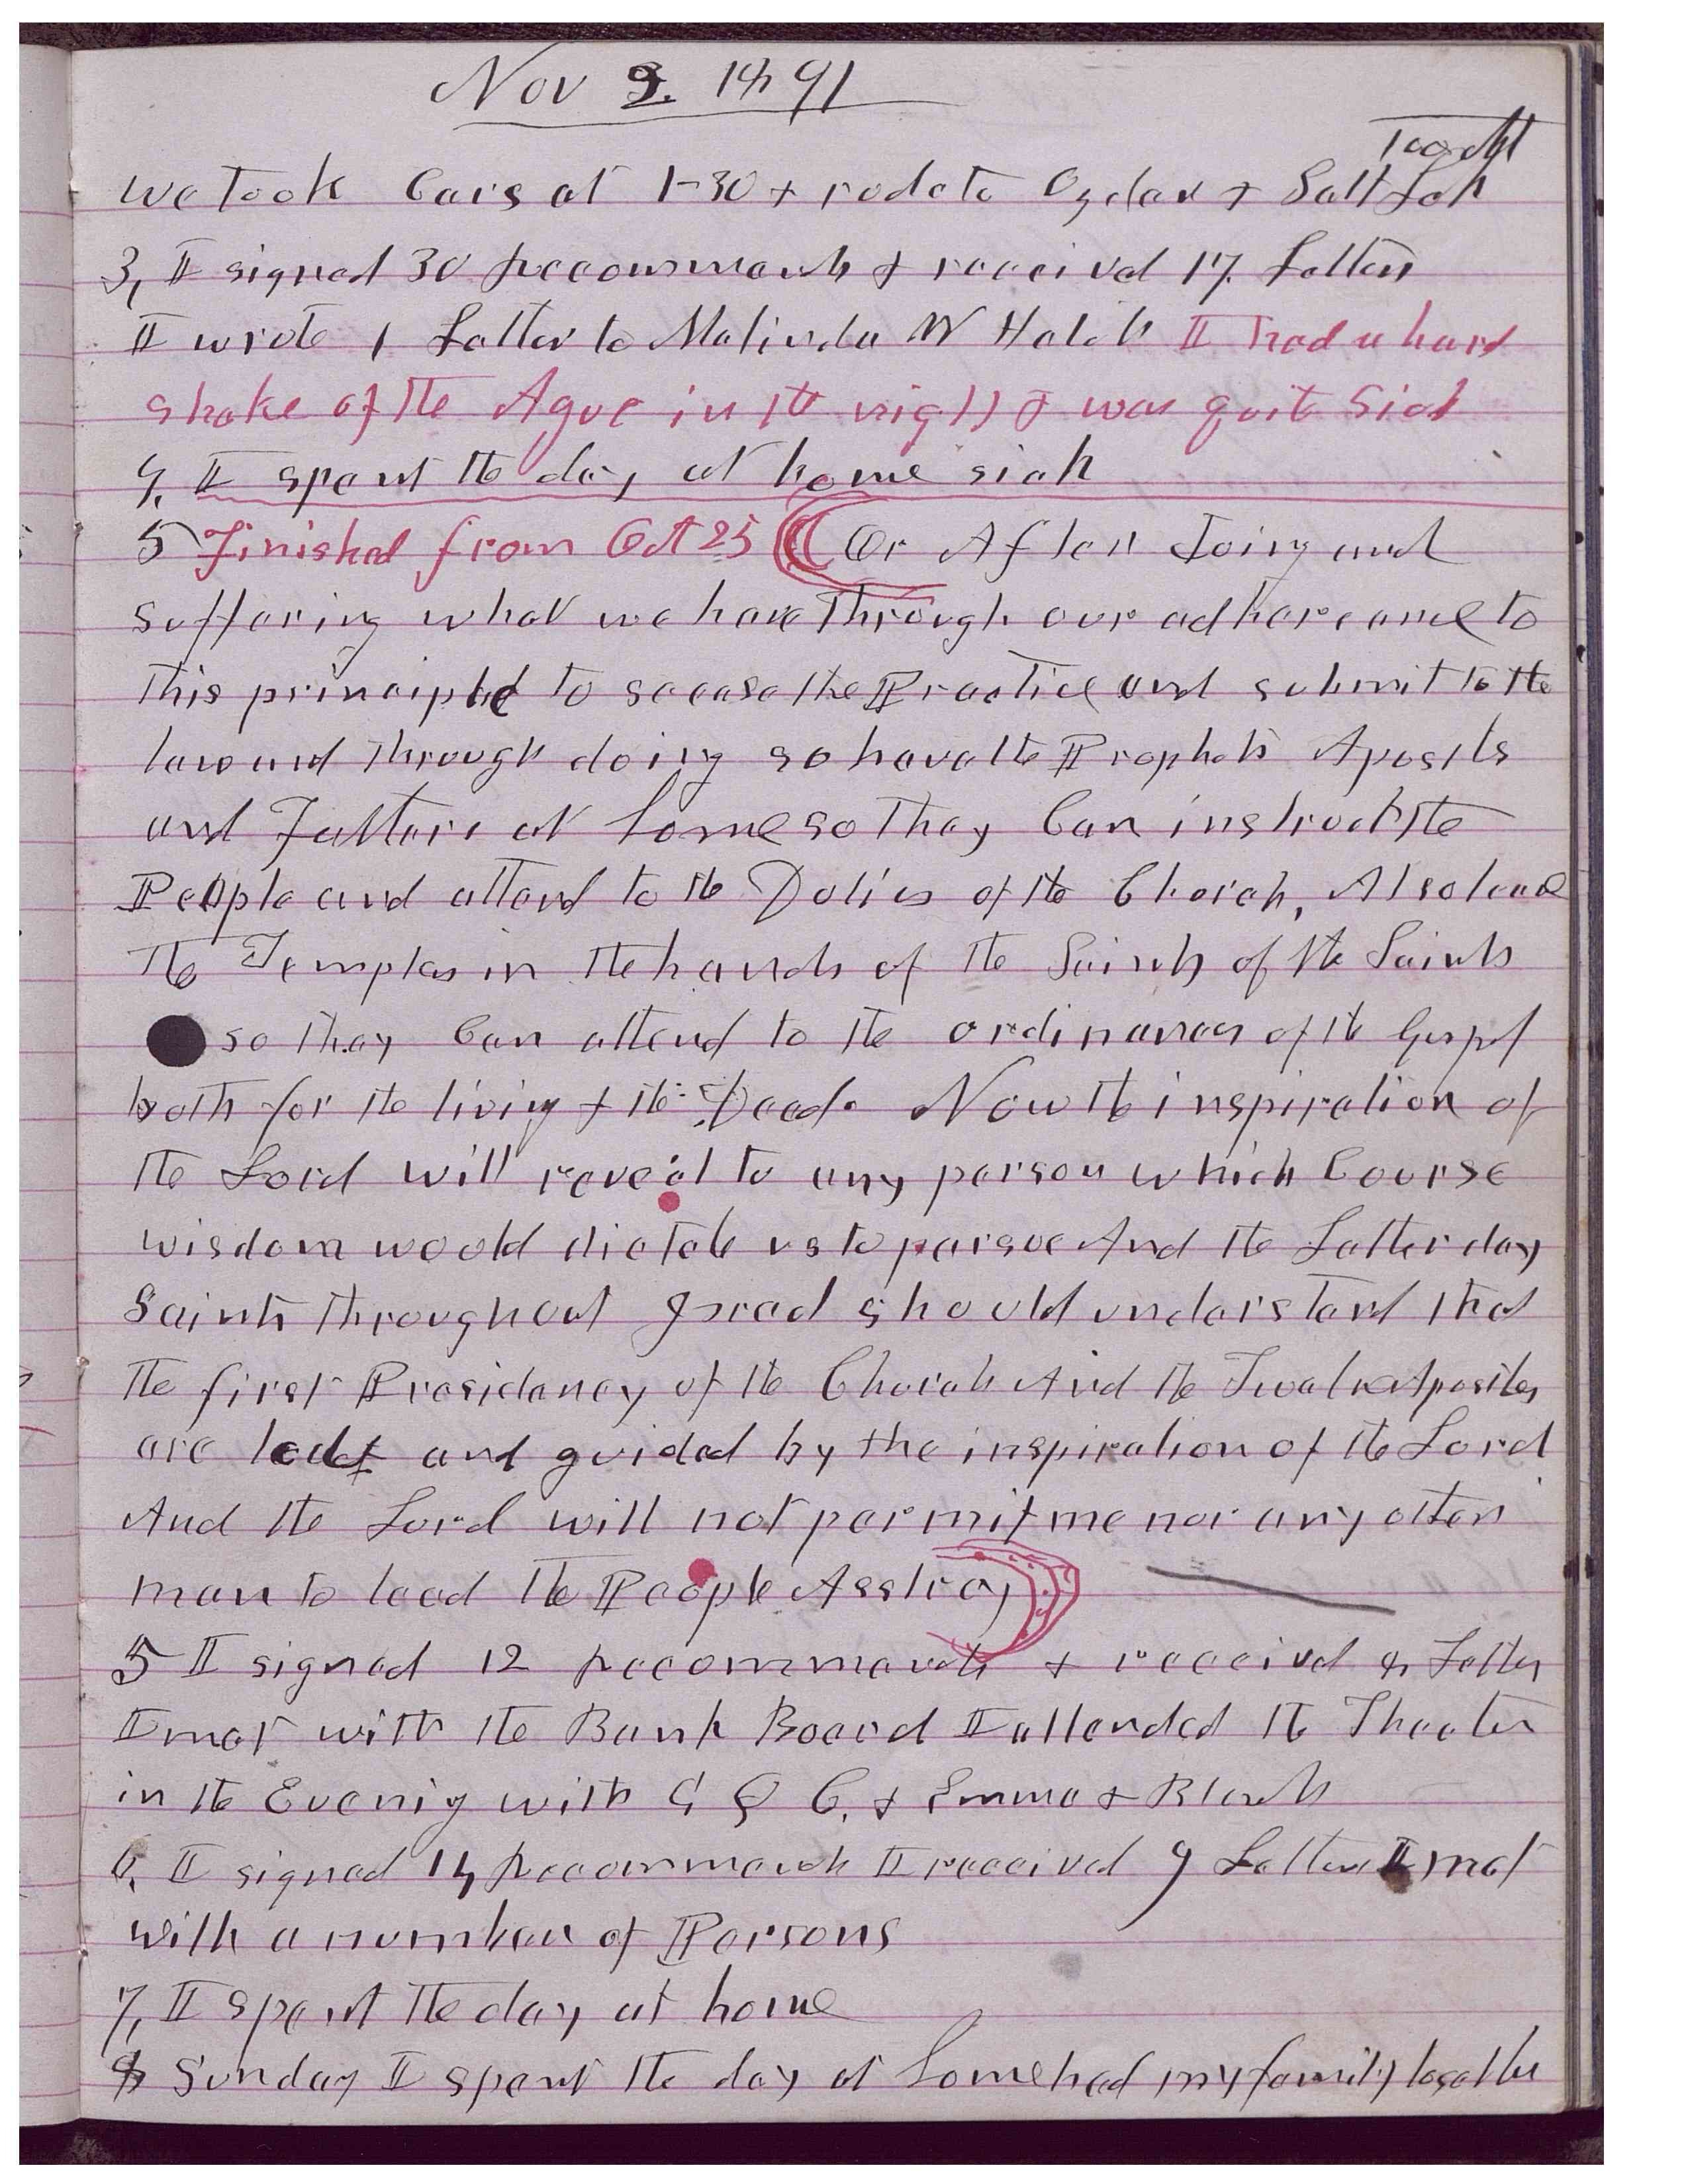 Nov 3. 1891
we took Cars at 1-30 + rode to Ogden + Salt Lak
3, I signed 30 Recommends + received 17 Letters
I wrote 1 Letter to Malinda W Hatch I had a hard
shake of the Ague in the night & was quite Sick
4, I spent the day at home sick
5 Finished from Oct 25 Or After doing and
suffering what we have through our adhereance to
this principle to scease the Practice and submit to the
law and through doing so have the Prophets Apostls
and Fathers at home so they Can instruct the
People and attend to the Duties of the Church, Also leave
the Temples in the hands of the Saints of the Saints
so they Can attend to the ordinances of the Gospel
both for the living + the Dead. Now the inspiration of
the Lord will reveal to any person which Course
wisdom would dictate us to persue And the Latter day
Saints throughout Israel should understand that
the first Presidency of the Church And the Twelve Apostles
are led and guided by the inspiration of the Lord
And the Lord will not permit me nor any other
man to lead the People Asstray
5 I signed 12 Recommends + received 8 Letters
I met with the Bank Board I attended the Theater
in the Evenig with G Q C. + Emma + Blanch
6, I signed 14 Recommends I received 9 Letters I met
with a number of Persons
7, I spent the day at home
8 Sunday I spent the day at home had my family together